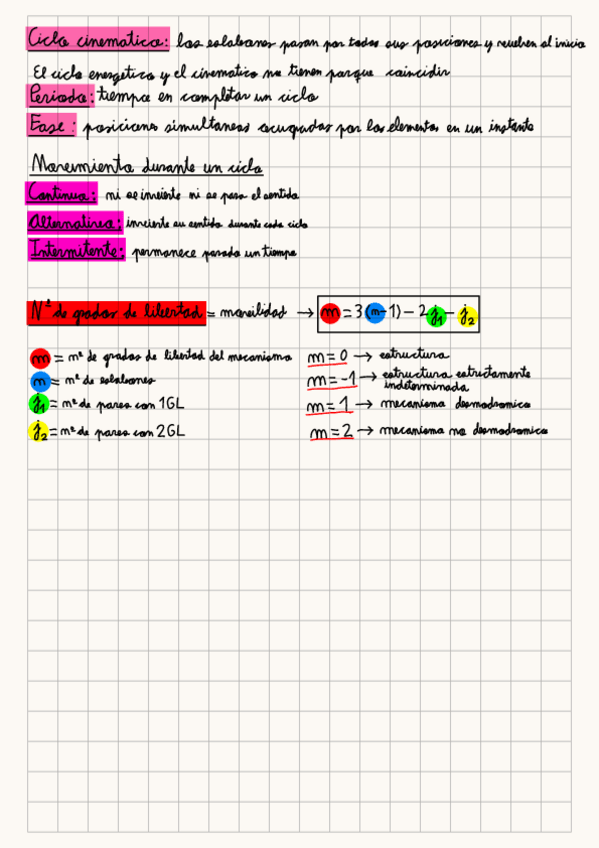 Ciclo cinematico: los eslabones pasan por todas sus posiciones y vuelven al inicio
El ciclo energético y el cinematico no tienen porque coincidir
Periodo: tiempo en completar un ciclo
Fase: posiciones simultaneas ocupadas por los elementos en un instante
Movimiento durante un ciclo
Continuo: ni se invierte ni se para el sentido
Alternativo: invierte su sentido durante cada ciclo
Intermitente: permanece parado un tiempo
Nº de grados de libertad = movilidad → m = 3(n-1) - 2j₁ - j₂
m = nº de grados de libertad del mecanismo
n = nº de eslabones
j₁ = nº de pares con 1GL
j₂ = nº de pares con 2GL
m = 0 → estructura
m = -1 → estructura estáticamente indeterminada
m = 1 → mecanismo desmodromico
m = 2 → mecanismo no desmodromico